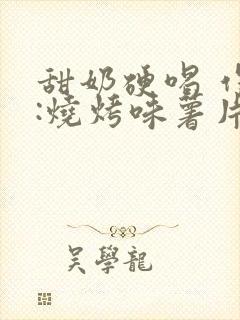 甜奶硬唱
:燒烤味薯片
吴學龍